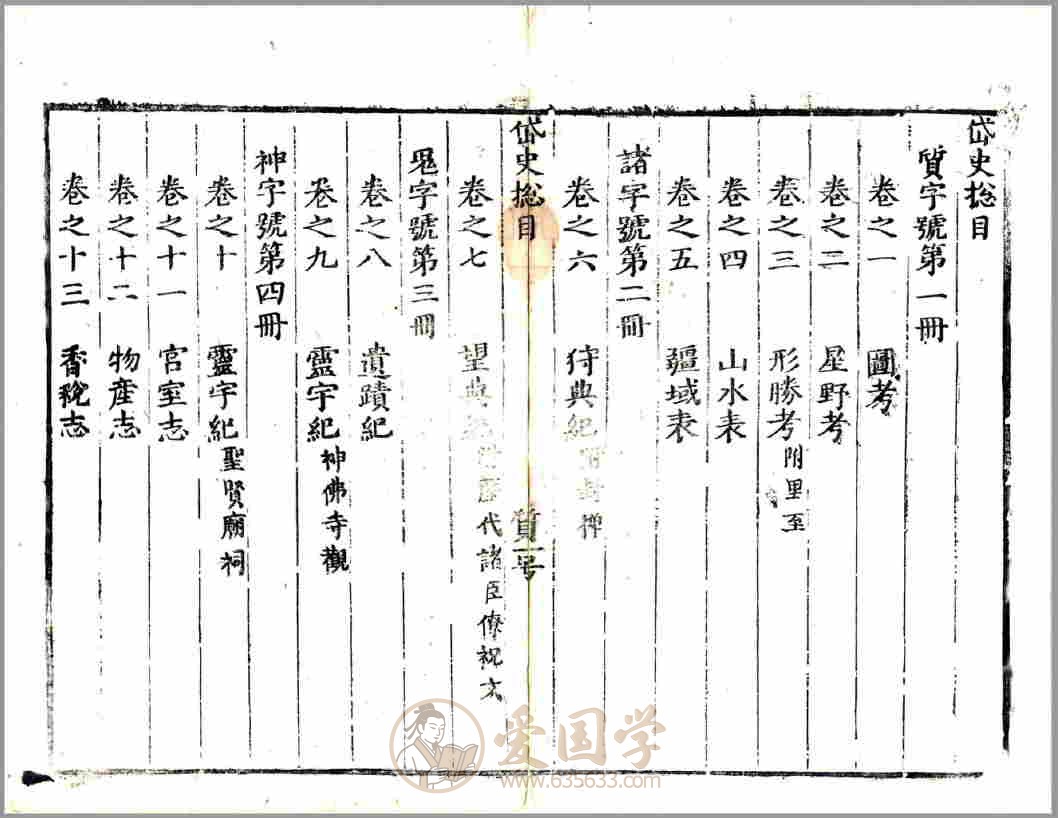 岱史捴目
質字號第一冊
卷之一 圖考
卷之二 星野考
卷之三 形勝考 附里至
卷之四 山水表
卷之五 疆域表
諸字號第二冊
卷之六 狩典紀 附封禪
岱史捴目 質一号
卷之七 望典紀 歷代諸臣僚祝文
鬼字號第三冊
卷之八 遺蹟紀
卷之九 靈宇紀 神佛寺觀
神字號第四冊
卷之十 靈宇紀 聖賢廟祠
卷之十一 宮室志
卷之十二 物產志
卷之十三 香稅志
爱国学
www.635633.com